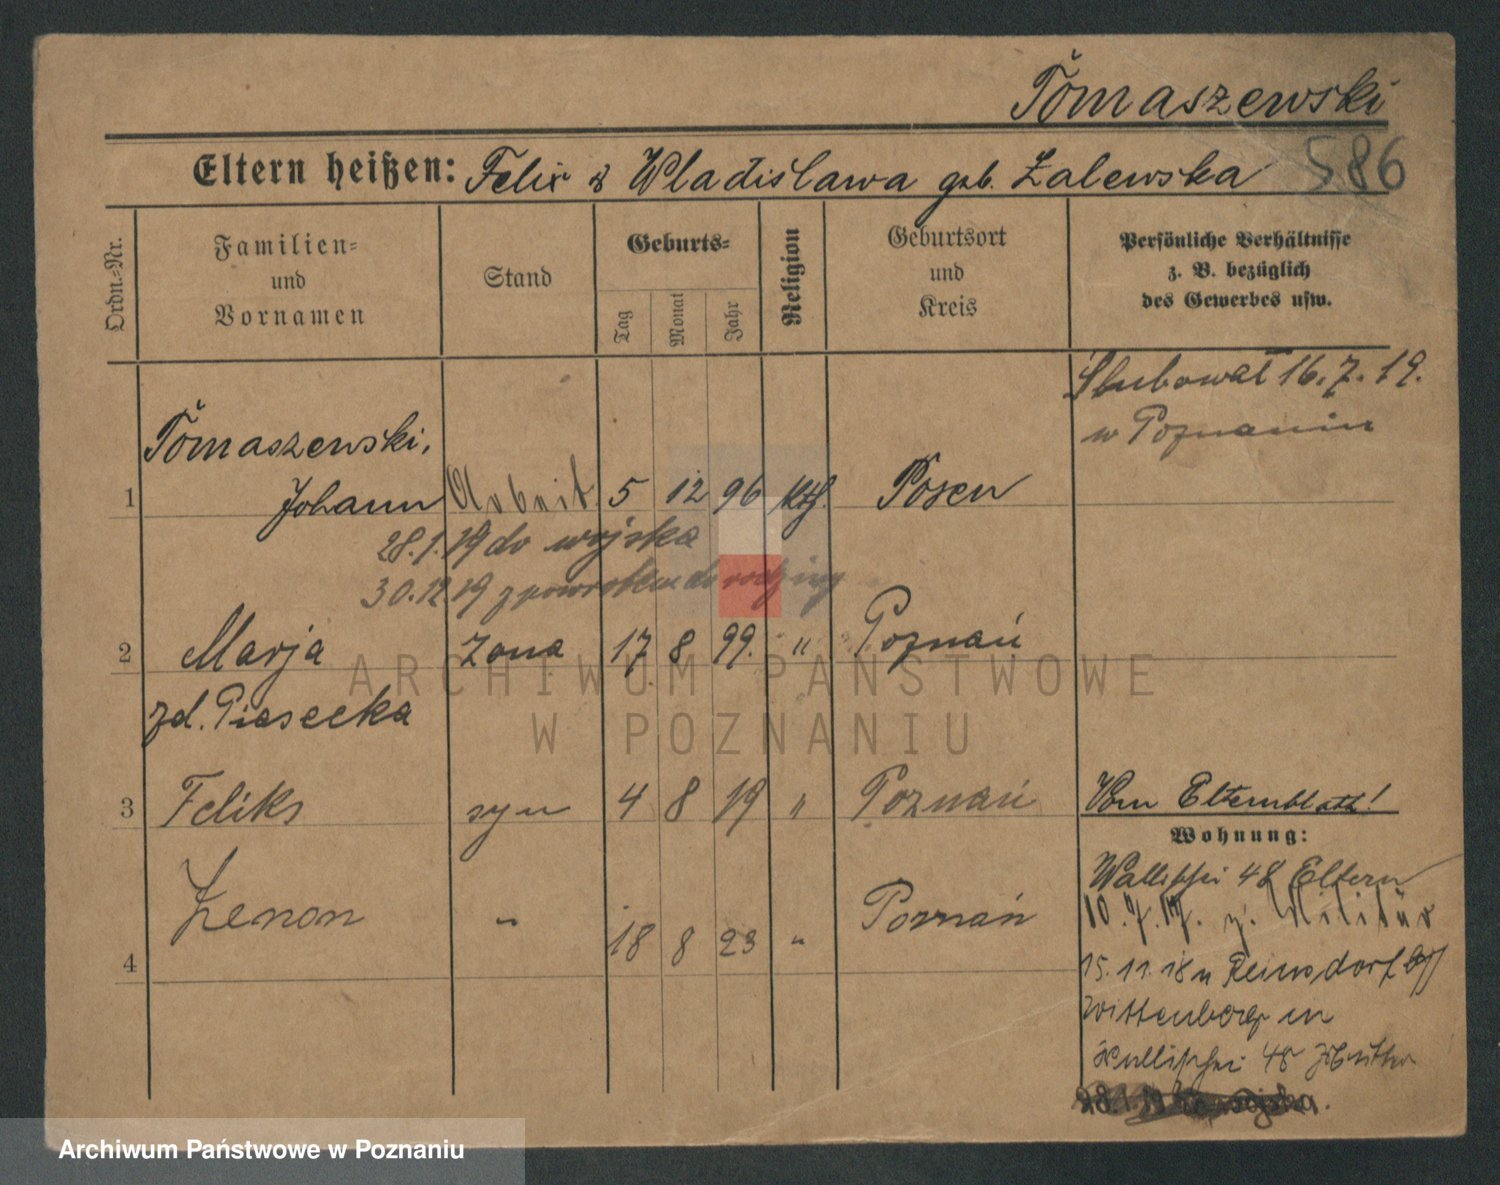 Tomaszewski
Eltern heißen: Felix & Wladislawa geb. Zalewska 586
Ordn.-Nr.
Familien-
und
Vornamen
Stand
Geburts-
Tag
Monat
Jahr
Religion
Geburtsort
und
Kreis
Persönliche Verhältnisse
z. B. bezüglich
des Gewerbes usw.
Slubował 16.7.19.
w Poznaniu
Tomaszewski,
1 Johann Arbeit 5 12 96 kth. Posen
28.1.19 do wojska
30.12.19 z powrotem do rodziny
2 Marja żona 17 8 99. " Poznań
zd. Piasecka
3 Feliks syn 4 8 19 " Poznań
Vom Elternblatt!
Wohnung:
Wallischei 48 Eltern
10.7.17. z. Militär
4 Zenon " 18 8 23 " Poznań
15.11.18 n Reinsdorf
Wittenberg in
Wallischei 48
28.1.19 wojska.
ARCHIWUM PAŃSTWOWE
W POZNANIU
Archiwum Państwowe w Poznaniu